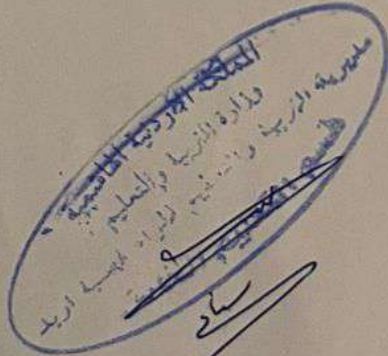 المملكة الأردنية الهاشمية
وزارة التربية والتعليم
مديرية التربية والتعليم لواء قصبة اربد
قسم